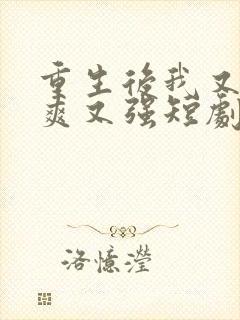 重生後我又
爽又強短劇
洛憶瀅